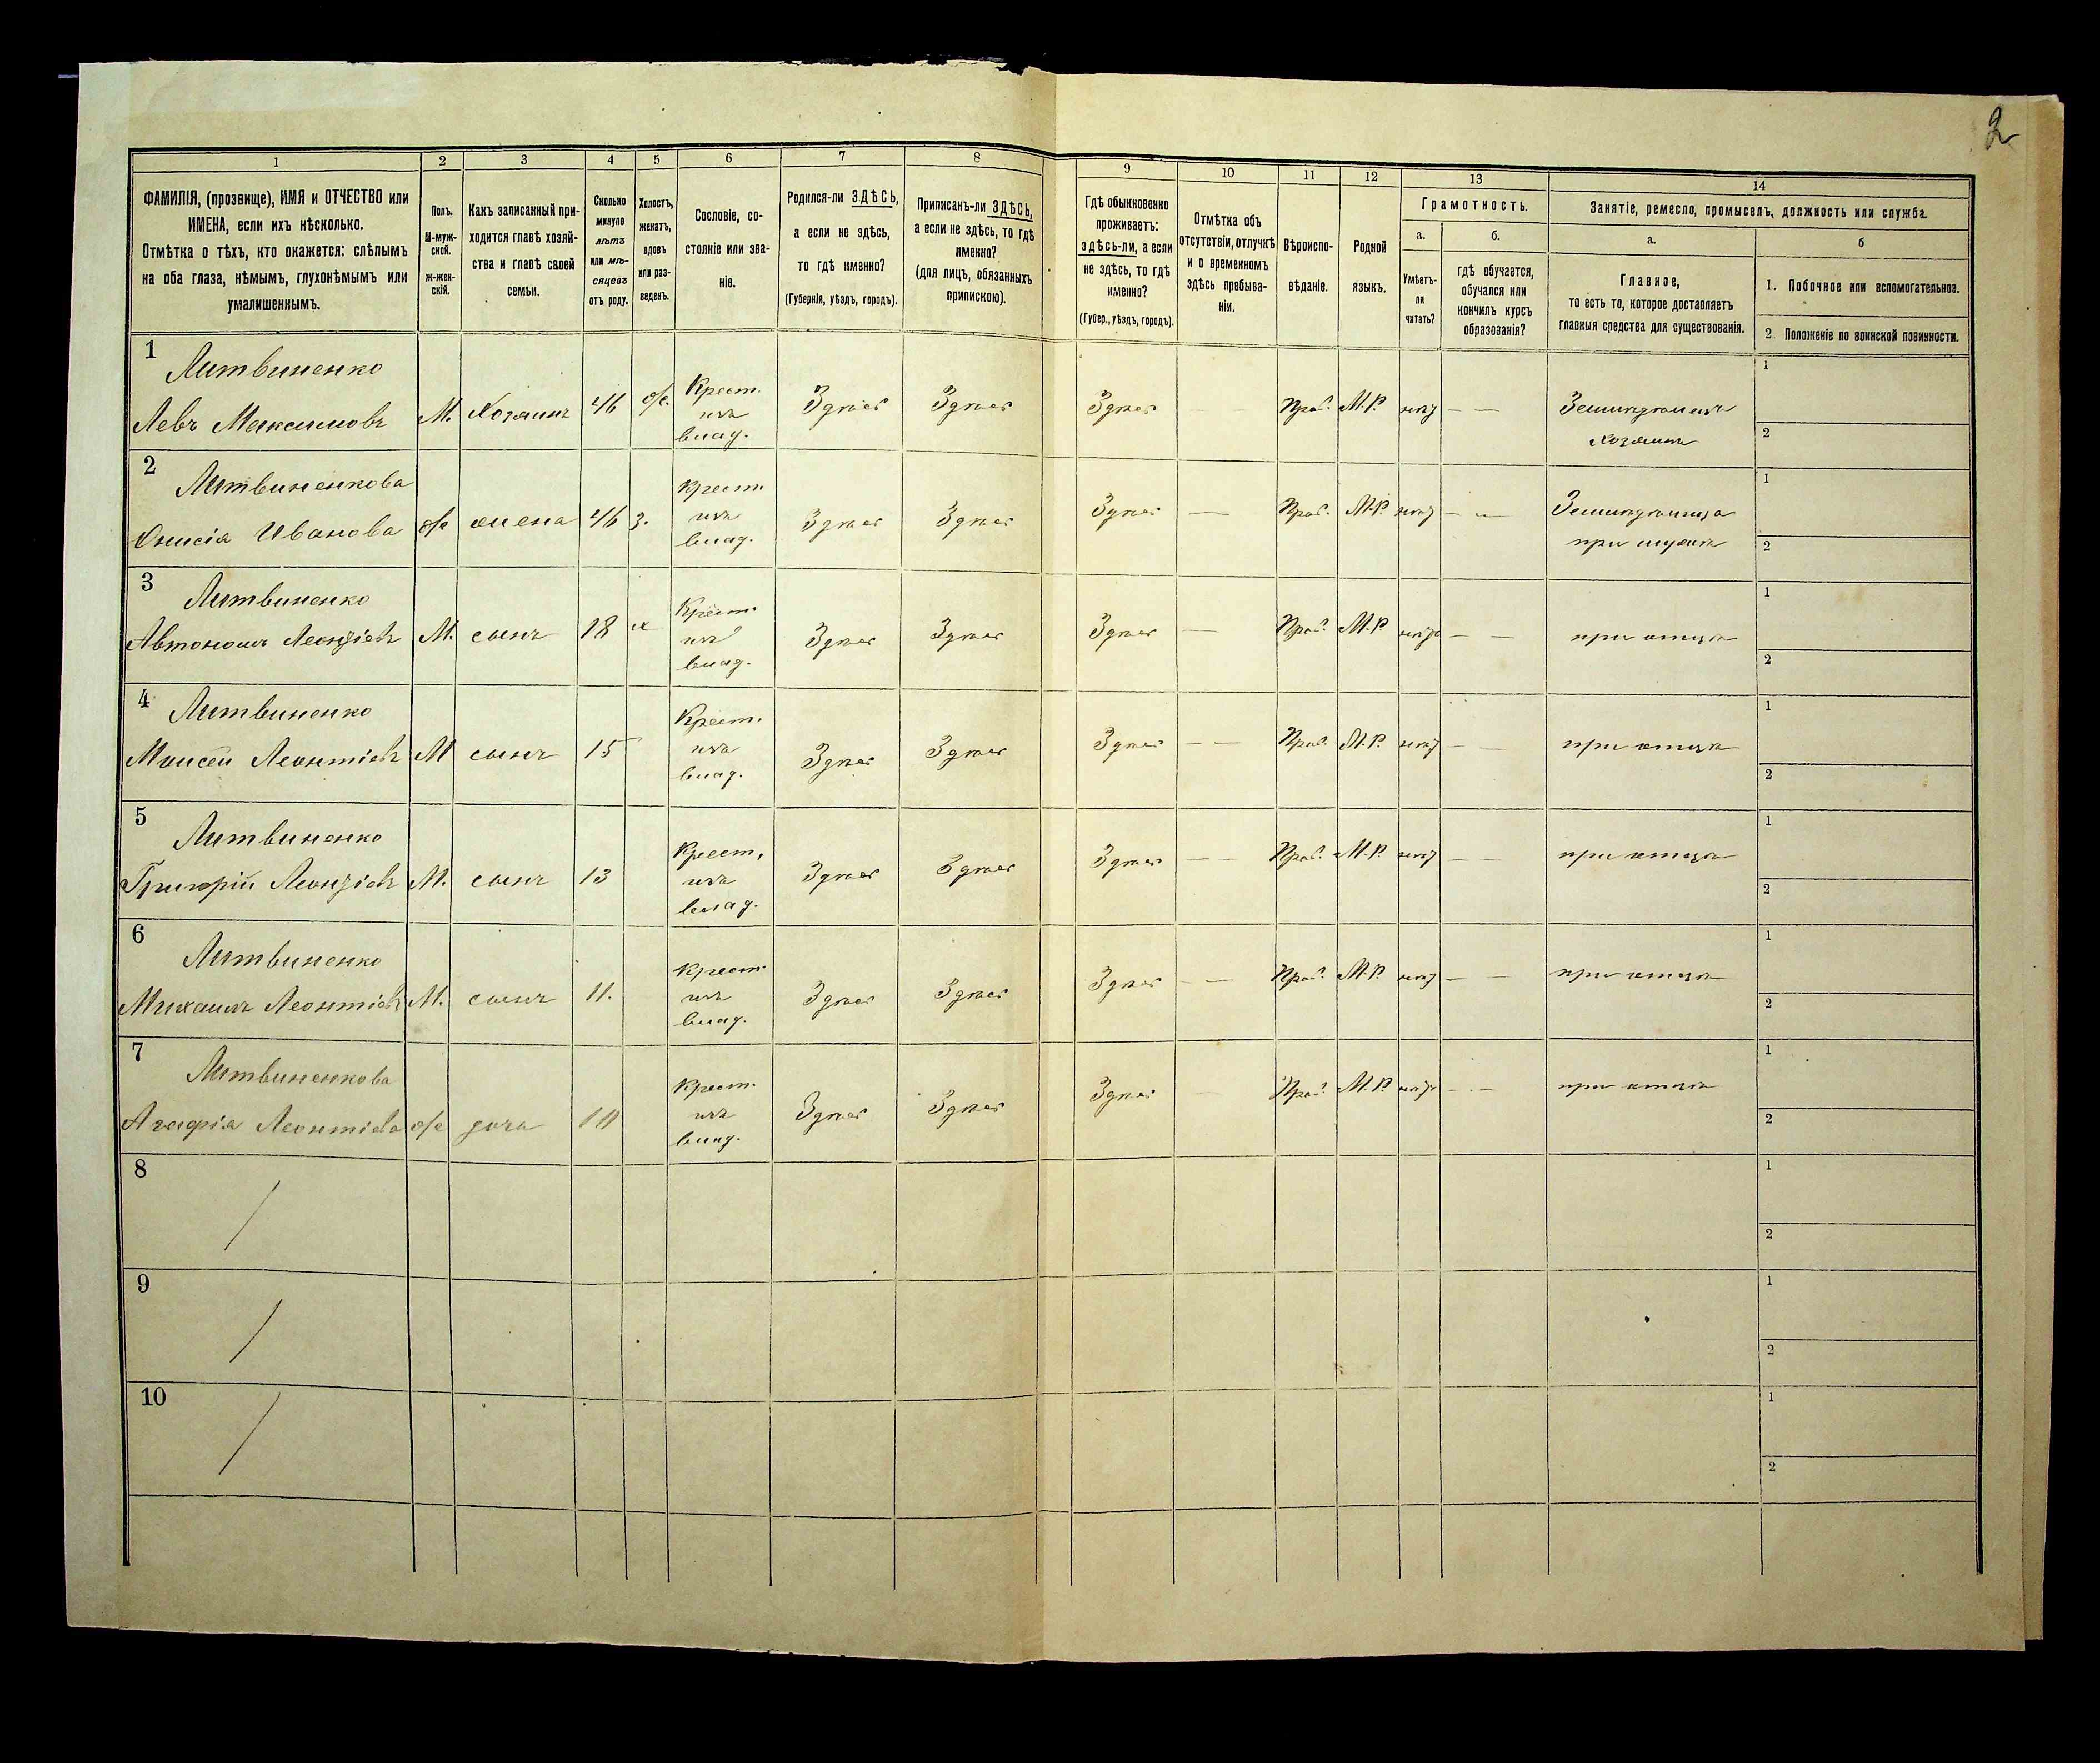 2
1 2 3 4 5 6 7 8 9 10 11 12 13 14
ФАМИЛІЯ, (прозвище), ИМЯ и ОТЧЕСТВО или
ИМЕНА, если ихъ нѣсколько.
Отмѣтка о тѣхъ, кто окажется: слѣпымъ
на оба глаза, нѣмымъ, глухонѣмымъ или
умалишеннымъ.
Полъ.
М-муж-
ской.
ж-жен-
скій.
Какъ записанный при-
ходится главѣ хозяй-
ства и главѣ своей
семьи.
Сколько
минуло
лѣтъ
или мѣ-
сяцевъ
отъ роду.
Холостъ,
женатъ,
вдовъ
или раз-
веденъ.
Сословіе, со-
стояніе или зва-
ніе.
Родился-ли ЗДѢСЬ,
а если не здѣсь,
то гдѣ именно?
(Губернія, уѣздъ, городъ).
Приписанъ-ли ЗДѢСЬ,
а если не здѣсь, то гдѣ
именно?
(для лицъ, обязанныхъ
припискою).
Гдѣ обыкновенно
проживаетъ:
здѣсь-ли, а если
не здѣсь, то гдѣ
именно?
(Губер., уѣздъ, городъ).
Отмѣтка объ
отсутствіи, отлучкѣ
и о временномъ
здѣсь пребыва-
ніи.
Вѣроиспо-
вѣданіе.
Родной
языкъ.
Грамотность.
а.
Умѣетъ-
ли
читать?
б.
гдѣ обучается,
обучался или
кончилъ курсъ
образованія?
Занятіе, ремесло, промыселъ, должность или служба.
а.
Главное,
то есть то, которое доставляетъ
главныя средства для существованія.
б
1. Побочное или вспомогательное.
2. Положеніе по воинской повинности.
1
Литвиненко
Левъ Максимовъ М. Хозяинъ 46 ж. Крест. Здѣсь Здѣсь Здѣсь — Прав. М.Р. нѣт — — Земледѣлецъ 1
изъ
влад. хозяинъ 2
2
Литвиненкова
Анисія Иванова ж жена 46 з. Крест. Здѣсь Здѣсь Здѣсь — Прав. М.Р. нѣт — — Земледѣлица 1
изъ
влад. при мужѣ 2
3
Литвиненко
Автономъ Леонтіевъ М. сынъ 18 х Крест. Здѣсь Здѣсь Здѣсь — Прав. М.Р. нѣтъ — — при отцѣ 1
изъ
влад. 2
4
Литвиненко
Моисей Леонтіевъ М сынъ 15 Крест. Здѣсь Здѣсь Здѣсь — — Прав. М.Р. нѣт — — при отцѣ 1
изъ
влад. 2
5
Литвиненко
Григорій Леонтіевъ М. сынъ 13 Крест. Здѣсь Здѣсь Здѣсь — — Прав. М.Р. нѣт — — при отцѣ 1
изъ
влад. 2
6
Литвиненко
Михаилъ Леонтіевъ М. сынъ 11. Крест. Здѣсь Здѣсь Здѣсь — — Прав. М.Р. нѣт — — при отцѣ 1
изъ
влад. 2
7
Литвиненкова
Агафія Леонтіева ж дочь Крест. Здѣсь Здѣсь Здѣсь — Прав. М.Р. нѣтъ — — при отцѣ 1
изъ
влад. 2
8 1
2
9 1
2
10 1
2